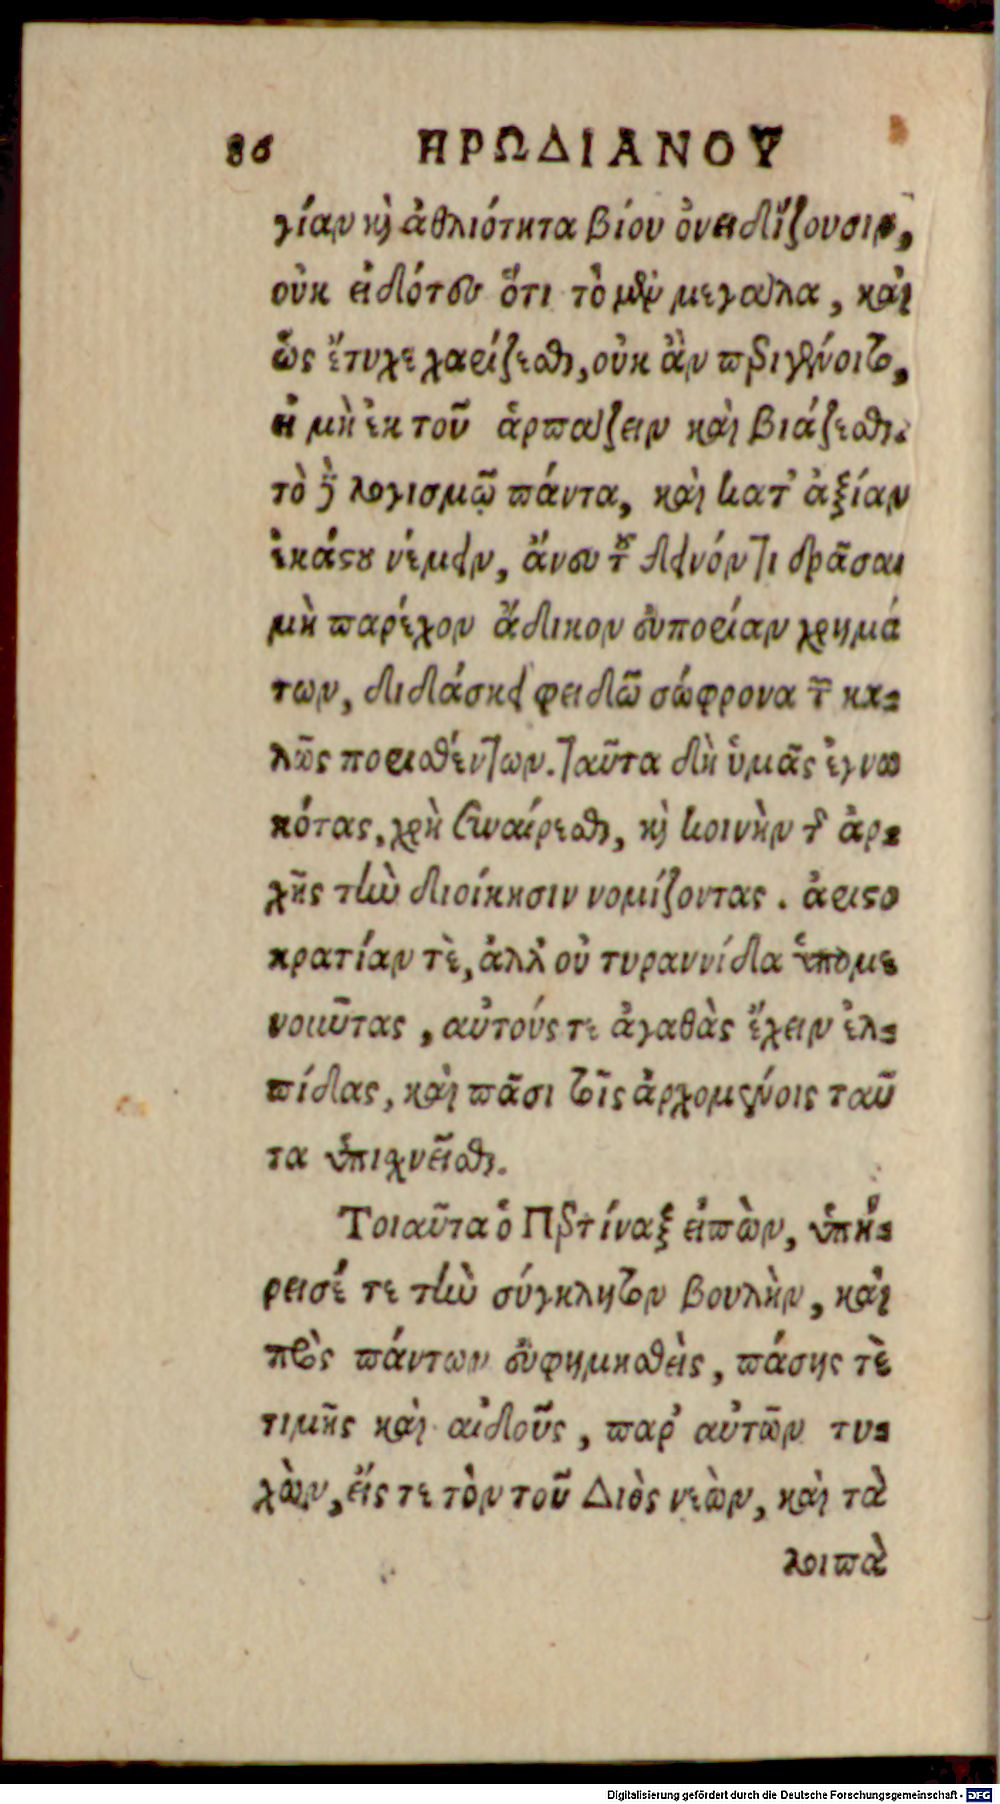 86 ΗΡΩΔΙΑΝΟΥ
γίαν καὶ ἀθλιότητα βίου ὀνειδίζουσιν,
οὐκ εἰδότες ὅτι τὸ μὲν μεγάλα, καὶ
ὡς ἔτυχε χαρίζεσθαι, οὐκ ἂν περιγένοιτο,
εἰ μὴ ἐκ τοῦ ἁρπάζειν καὶ βιάζεσθαι.
τὸ δὲ λογισμῷ πάντα, καὶ κατ' ἀξίαν
ἑκάστου νέμειν, ἄνευ τοῦ δεινόν τι δρᾶσαι
μὴ παρέχον ἄδικον εὐπορίαν χρημά
των, διδάσκει φειδῶ σώφρονα τῶν κα-
λῶς πορισθέντων. ταῦτα δὴ ὑμᾶς ἐγνω
κότας, χρὴ συναίρεσθαι, καὶ κοινὴν τῆς ἀρ-
χῆς τὴν διοίκησιν νομίζοντας. ἀριστο
κρατίαν τὲ, ἀλλ' οὐ τυραννίδα ὑπομε
νοῦντας, αὐτούς τε ἀγαθὰς ἔχειν ἐλ-
πίδας, καὶ πᾶσι τοῖς ἀρχομένοις ταῦ
τα ὑπισχνεῖσθαι.
Τοιαῦτα ὁ Περτίναξ εἰπὼν, ὑπή-
ρεισέ τε τὴν σύγκλητον βουλὴν, καὶ
πρὸς πάντων εὐφημηθεὶς, πάσης τὲ
τιμῆς καὶ αἰδοῦς, παρ' αὐτῶν τυ-
χὼν, εἴς τε τὸν τοῦ Διὸς νεὼν, καὶ τὰ
λοιπὰ
Digitalisierung gefördert durch die Deutsche Forschungsgemeinschaft - DFG